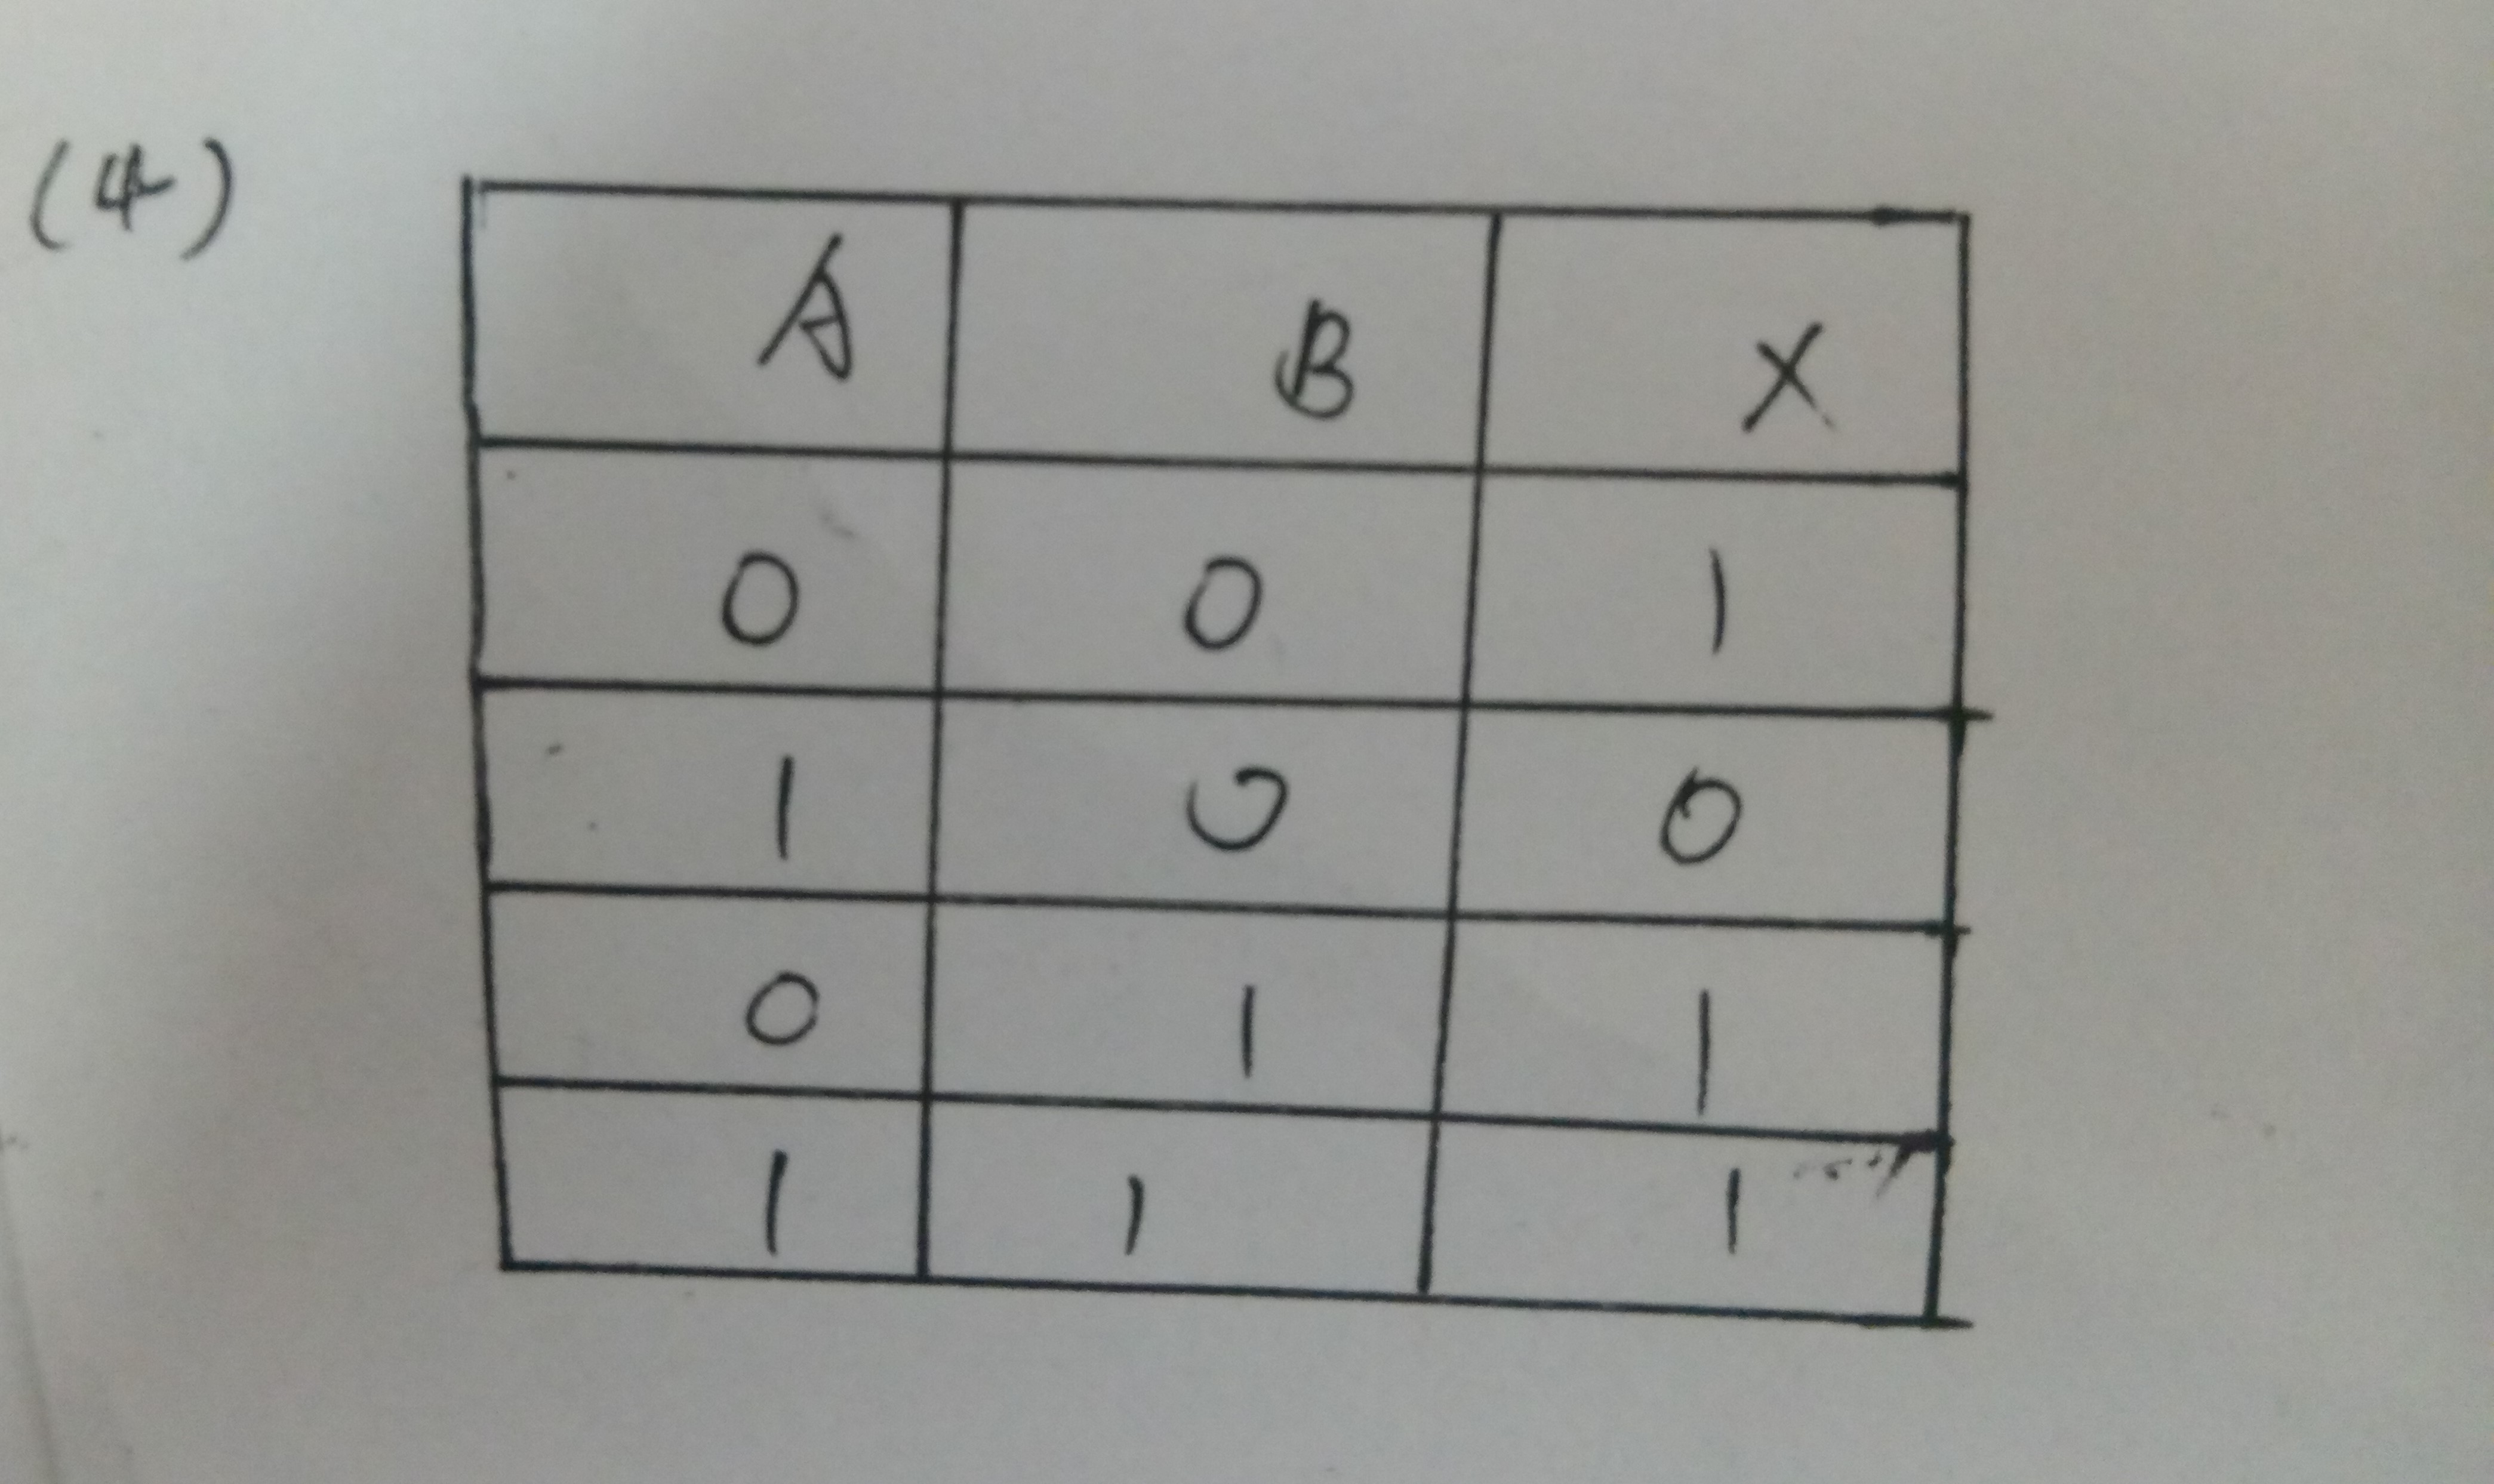 (4)
A B X
0 0 1
1 0 0
0 1 1
1 1 1